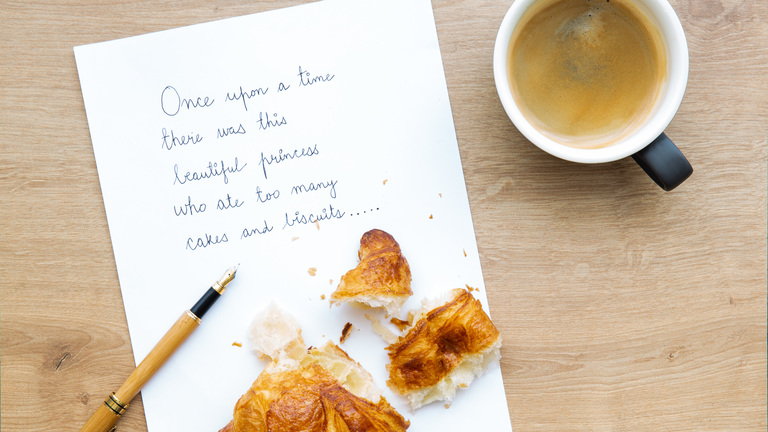 Once upon a time
there was this
beautiful princess
who ate too many
cakes and biscuits.....